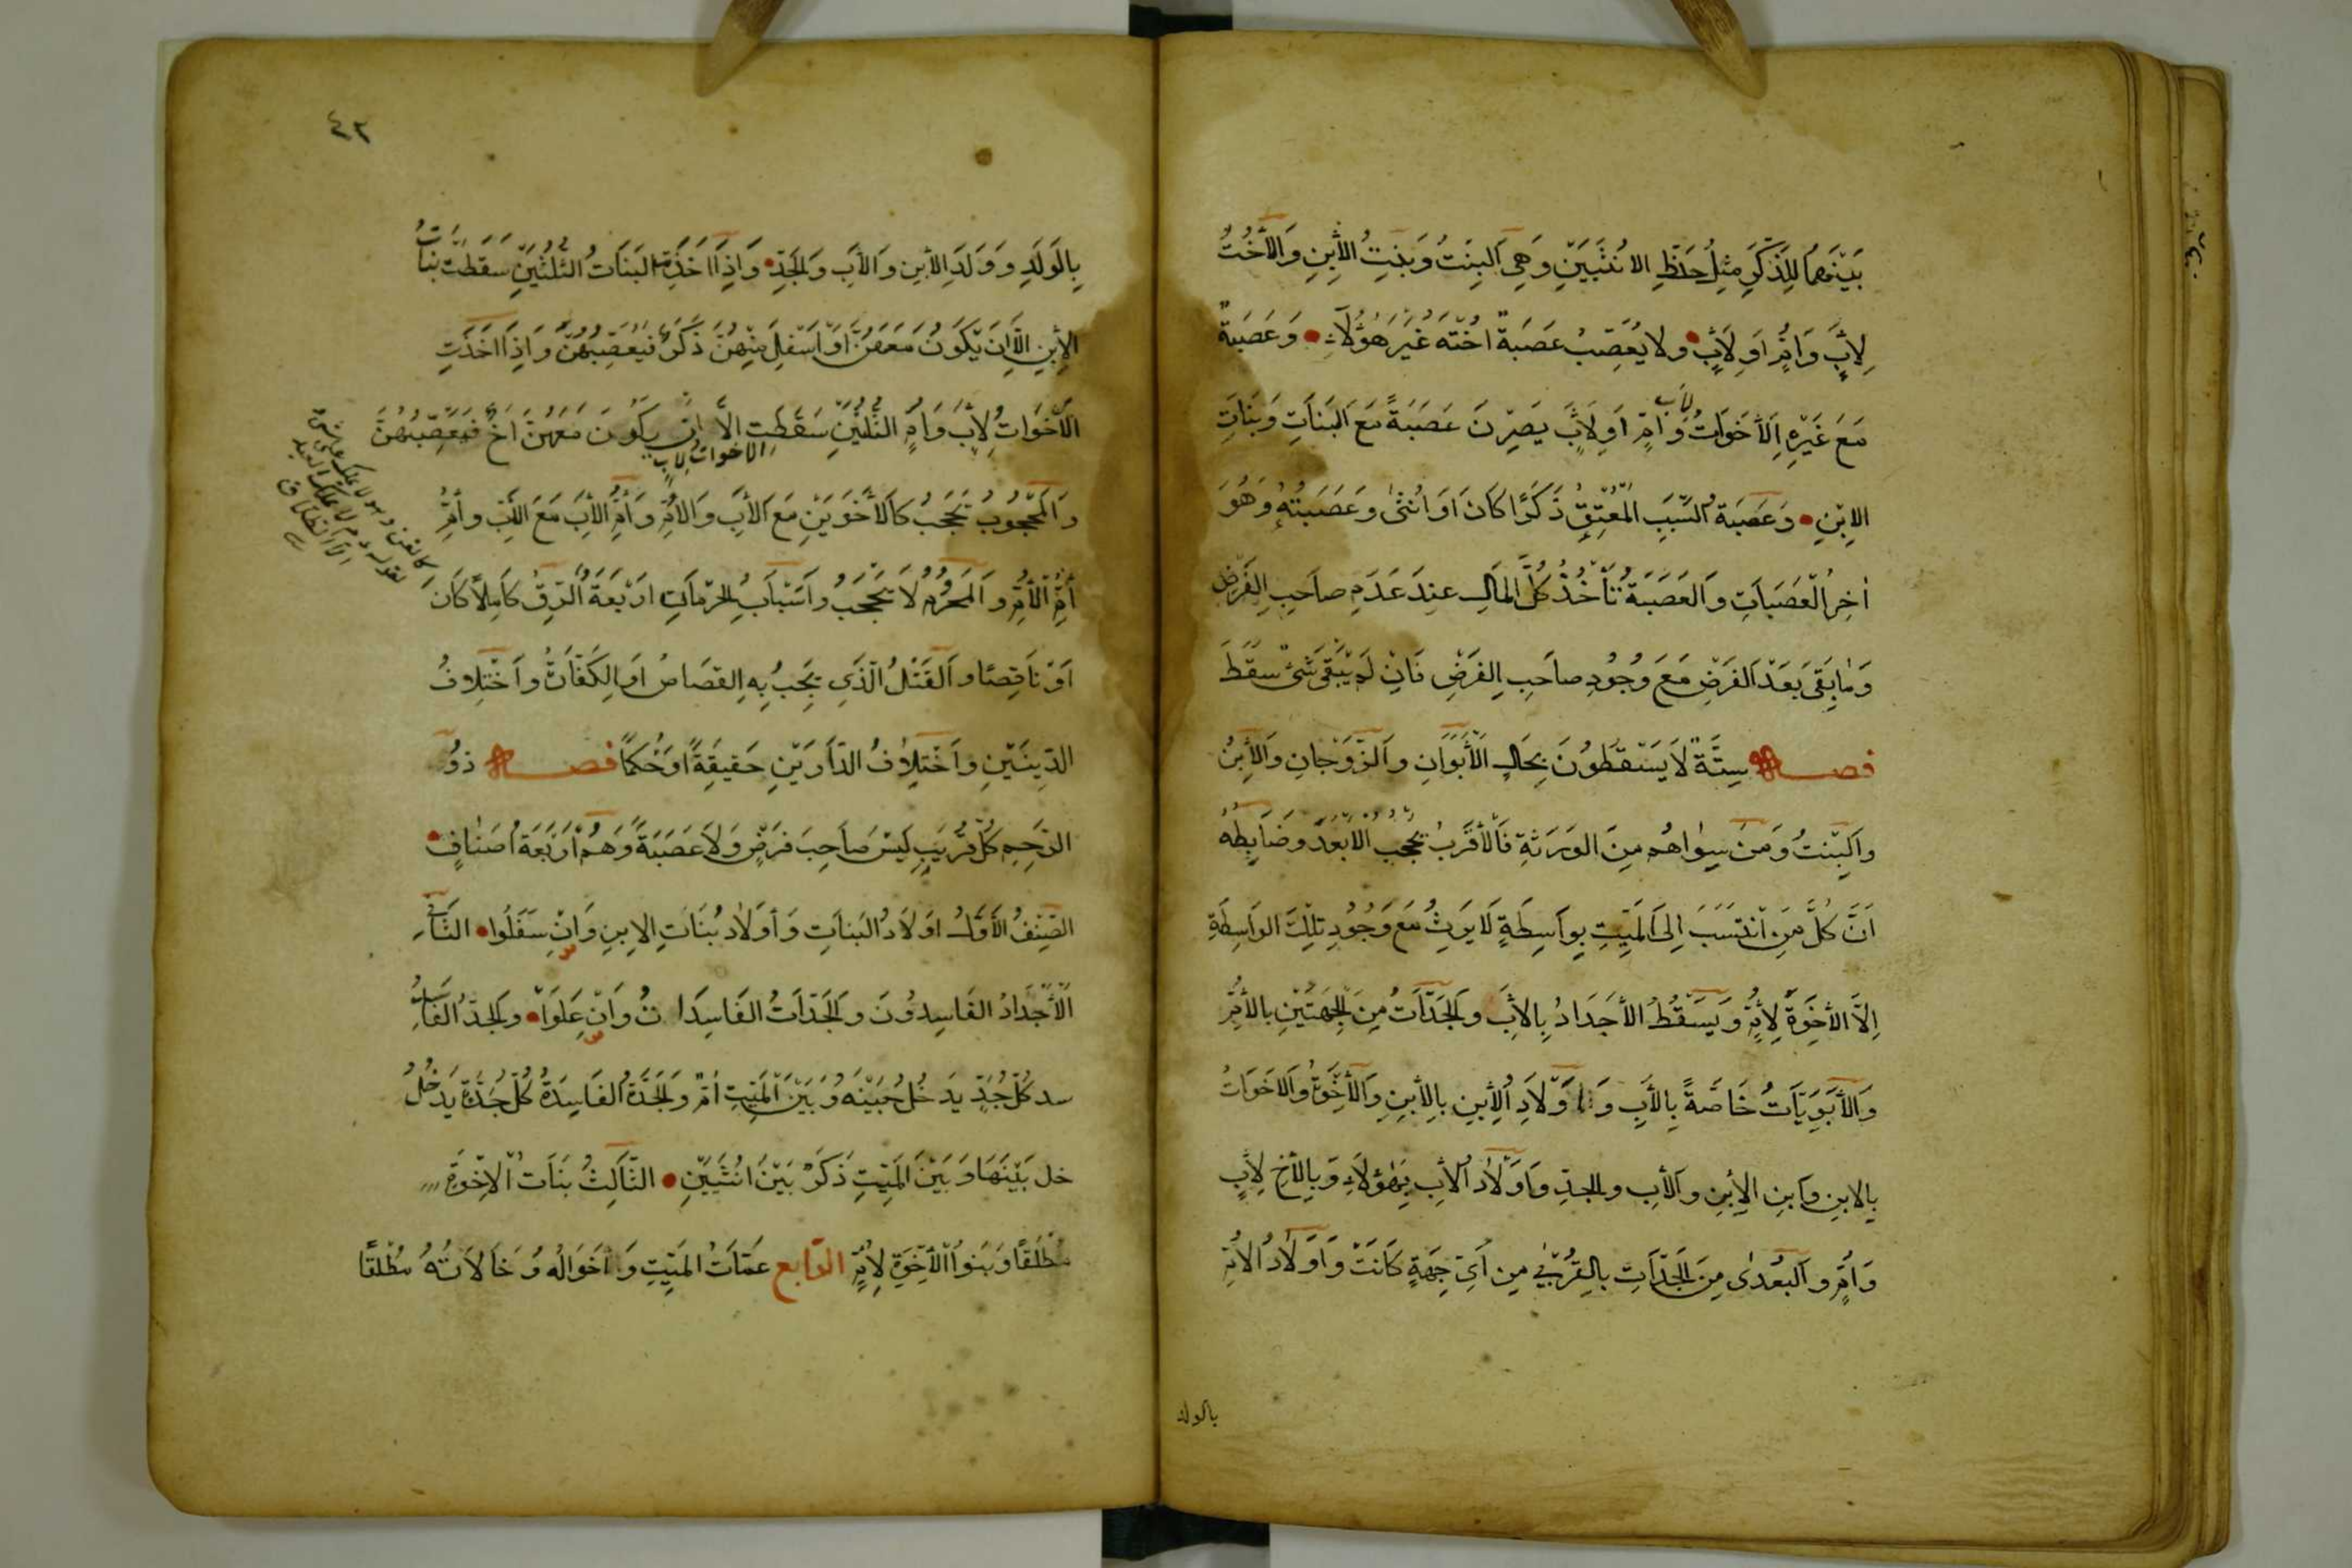 بَيْنَهُمَا لِلذَّكَرِ مِثْلُ حَظِّ الأُنْثَيَيْنِ وَهِيَ الْبِنْتُ وَبِنْتُ الاِبْنِ وَالأُخْتُ
لِأَبٍ وَأُمٍّ أَوْ لِأَبٍ وَلا يُعَصِّبُ عَصَبَةٌ أُخْتَهُ غَيْرَ هَؤُلَاءِ وَعَصَبَةٌ
مَعَ غَيْرِهِ الأَخَوَاتُ لِأَبٍ وَأُمٍّ أَوْ لِأَبٍ يَصِرْنَ عَصَبَةً مَعَ الْبَنَاتِ وَبَنَاتِ
الاِبْنِ وَعَصَبَةُ السَّبَبِ الْمُعْتِقُ ذَكَرًا كَانَ أَوْ أُنْثَى وَعَصَبَتُهُ وَهُوَ
آخِرُ الْعَصَبَاتِ وَالْعَصَبَةُ تَأْخُذُ كُلَّ الْمَالِ عِنْدَ عَدَمِ صَاحِبِ الْفَرْضِ
وَمَا بَقِيَ بَعْدَ الْفَرْضِ مَعَ وُجُودِ صَاحِبِ الْفَرْضِ فَإِنْ لَمْ يَبْقَ شَيْءٌ سَقَطَ
فصل سِتَّةٌ لَا يَسْقُطُونَ بِحَالٍ الأَبَوَانِ وَالزَّوْجَانِ وَالاِبْنُ
وَالْبِنْتُ وَمَنْ سِوَاهُمْ مِنَ الْوَرَثَةِ فَالأَقْرَبُ يَحْجُبُ الأَبْعَدَ وَضَابِطُهُ
أَنَّ كُلَّ مَنِ انْتَسَبَ إِلَى الْمَيِّتِ بِوَاسِطَةٍ لَا يَرِثُ مَعَ وُجُودِ تِلْكَ الْوَاسِطَةِ
إِلَّا الإِخْوَةَ لِأُمٍّ وَيَسْقُطُ الأَجْدَادُ بِالأَبِ وَالْجَدَّاتُ مِنَ الْجِهَتَيْنِ بِالأُمِّ
وَالأَبَوِيَّاتُ خَاصَّةً بِالأَبِ وَأَوْلَادُ الاِبْنِ بِالاِبْنِ وَالإِخْوَةُ وَالأَخَوَاتُ
بِالاِبْنِ وَابْنِ الاِبْنِ وَالأَبِ وَالْجَدِّ وَأَوْلَادُ الأَبِ بِهَؤُلَاءِ وَبِالأَخِ لِأَبٍ
وَأُمٍّ وَالْبُعْدَى مِنَ الْجَدَّاتِ بِالْقُرْبَى مِنْ أَيِّ جِهَةٍ كَانَتْ وَأَوْلَادُ الأُمِّ
بالولد
٤٢
بِالْوَلَدِ وَوَلَدِ الاِبْنِ وَالأَبِ وَالْجَدِّ وَإِذَا أَخَذَتِ الْبَنَاتُ الثُّلُثَيْنِ سَقَطَتْ بَنَاتُ
الاِبْنِ إِلَّا أَنْ يَكُونَ مَعَهُنَّ أَوْ أَسْفَلَ مِنْهُنَّ ذَكَرٌ فَيُعَصِّبُهُنَّ وَإِذَا أَخَذَتِ
الأَخَوَاتُ لِأَبٍ وَأُمٍّ الثُّلُثَيْنِ سَقَطَتِ الأخوات لأب إِلَّا أَنْ يَكُونَ مَعَهُنَّ أَخٌ فَيُعَصِّبُهُنَّ
وَالْمَحْجُوبُ يَحْجُبُ كَالأَخَوَيْنِ مَعَ الأَبِ وَالأُمِّ وَأُمِّ الأَبِ مَعَ الأَبِ وَأُمِّ
أُمِّ الأُمِّ وَالْمَحْرُومُ لَا يَحْجُبُ وَأَسْبَابُ الْحِرْمَانِ أَرْبَعَةٌ الرِّقُّ كَامِلًا كَانَ
أَوْ نَاقِصًا وَالْقَتْلُ الَّذِي يَجِبُ بِهِ الْقِصَاصُ أَوِ الْكَفَّارَةُ وَاخْتِلَافُ
الدِّينَيْنِ وَاخْتِلَافُ الدَّارَيْنِ حَقِيقَةً أَوْ حُكْمًا فصل ذُو
الرَّحِمِ كُلُّ قَرِيبٍ لَيْسَ صَاحِبَ فَرْضٍ وَلَا عَصَبَةً وَهُمْ أَرْبَعَةُ أَصْنَافٍ
الصِّنْفُ الأَوَّلُ أَوْلَادُ الْبَنَاتِ وَأَوْلَادُ بَنَاتِ الاِبْنِ وَإِنْ سَفَلُوا الثَّانِي
الأَجْدَادُ الْفَاسِدُونَ وَالْجَدَّاتُ الْفَاسِدَاتُ وَإِنْ عَلَوْا وَالْجَدُّ الْفَاسِدُ
سد كُلُّ جَدٍّ يَدْخُلُ بَيْنَهُ وَبَيْنَ الْمَيِّتِ أُمٌّ وَالْجَدَّةُ الْفَاسِدَةُ كُلُّ جَدَّةٍ يَدْخُلُ
خل بَيْنَهَا وَبَيْنَ الْمَيِّتِ ذَكَرٌ بَيْنَ أُنْثَيَيْنِ الثَّالِثُ بَنَاتُ الإِخْوَةِ
مُطْلَقًا وَبَنُو الإِخْوَةِ لِأُمٍّ الرَّابِع عَمَّاتُ الْمَيِّتِ وَأَخْوَالُهُ وَخَالَاتُهُ مُطْلَقًا